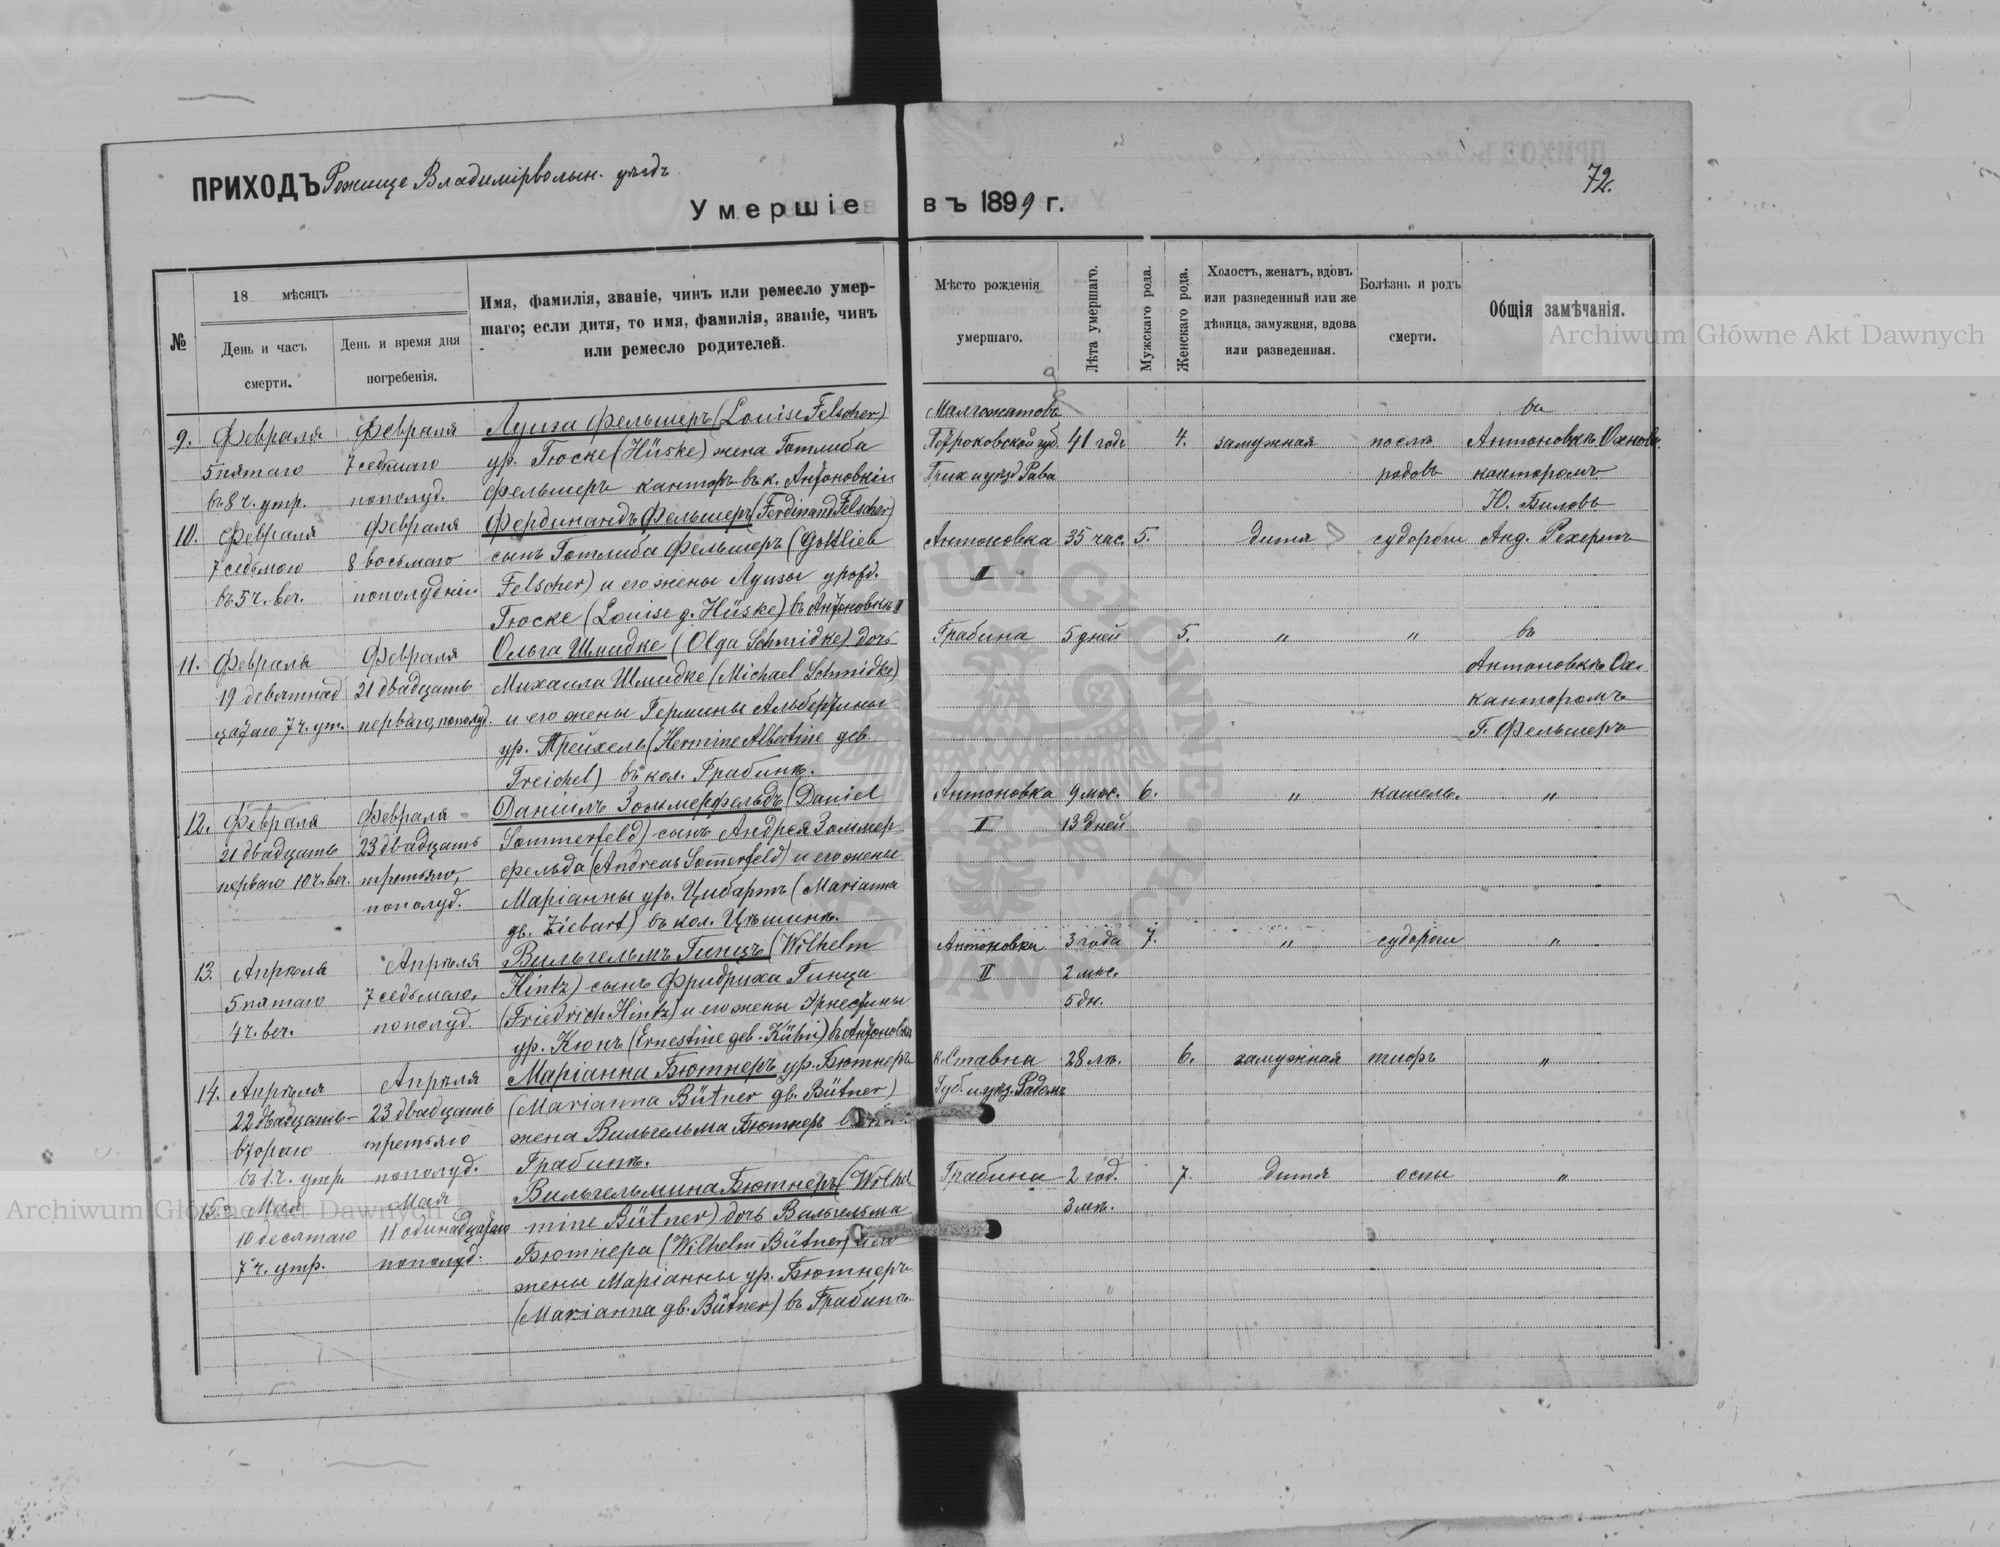 ПРИХОДЪ Рожище Владимірволын. уѣздъ
72.
Умершіе въ 1899 г.
№
18 мѣсяцъ
День и часъ смерти.
День и время дня погребенія.
Имя, фамилія, званіе, чинъ или ремесло умер-
шаго; если дитя, то имя, фамилія, званіе, чинъ
или ремесло родителей.
Мѣсто рожденія умершаго.
Лѣта умершаго.
Мужскаго рода.
Женскаго рода.
Холостъ, женатъ, вдовъ
или разведенный или же
дѣвица, замужняя, вдова
или разведенная.
Болѣзнь и родъ смерти.
Общія замѣчанія.
9.
Февраля
5 пятаго
въ 8 ч. утр.
Февраля
7 седьмаго
пополуд.
Луиза Фельшеръ (Louise Felscher)
ур. Гюске (Hüske) жена Готлиба
Фельшеръ канторъ въ к. Антоновкѣ
Петроковской губ.
41 годъ
4.
замужная
послѣ
родовъ
въ
Антоновкѣ
канторомъ
Ю. Биловъ
10.
Февраля
7 седьмого
въ 5 ч. веч.
Февраля
8 восьмаго
пополудни
Фердинандъ Фельшеръ (Ferdinand Felscher)
сынъ Готлиба Фельшеръ (Gottlieb
Felscher) и его жены Луизы урожд.
Гюске (Louise g. Hüske) въ Антоновкѣ II
Антоновка
II
35 час.
5.
дитя
судороги
Анд. Рехертъ
11.
Февраля
19 девятнад
цатаго 7 ч. ут.
Февраля
21 двадцать
перваго, пополуд.
Ольга Шмидке (Olga Schmidke) дочь
Михаила Шмидке (Michael Schmidke)
и его жены Гермины Альбертины
ур. Трейхель (Hermine Albertine geb.
Treichel) въ кол. Грабинѣ.
Грабина
5 дней
5.
"
"
въ
Антоновкѣ
канторомъ
Г. Фельшеръ
12.
Февраля
21 двадцать
перваго 10 ч. веч.
Февраля
23 двадцать
третьяго,
пополуд.
Даніилъ Зоммерфельдъ (Daniel
Sommerfeld) сынъ Андрея Зоммер
фельда (Andreas Somerfeld) и его жены
Маріанны ур. Цибартъ (Marianna
gb. Ziebart) въ кол.
Антоновка
I
9 мѣс.
13 дней
6.
"
кашель.
"
13.
Апрѣля
5 пятаго
4 ч. веч.
Апрѣля
7 седьмаго,
пополуд.
Вильгельмъ Гинцъ (Wilhelm
Hintz) сынъ Фридриха Гинца
(Friedrich Hintz) и его жены Эрнестины
ур. Кюнъ (Ernestine geb. Kühn) въ Антоновка
Антоновка
II
3 года
2 мѣс.
5 дн.
7.
"
судороги
"
14.
Апрѣля
22 двадцать-
втораго
въ 1 ч. утр.
Апрѣля
23 двадцать
третьяго
пополуд.
Маріанна Бютнеръ ур. Бютнеръ
(Marianna Bütner gb. Bütner)
жена Вильгельма Бютнеръ
Грабинѣ.
к. Ставна
Губ. и уѣз. Радомъ
28 лѣ.
6.
замужная
тифъ
"
15.
Мая
10 десятаго
7 ч. утр.
Мая
11 одинадцатаго
пополуд.
Вильгельмина Бютнеръ (Wilhel
mine Bütner) дочь Вильгельма
Бютнера (Wilhelm Bütner) и его
жены Маріанны ур. Бютнеръ
(Marianna gb. Bütner) въ Грабинѣ.
Грабина
2 год.
3 мѣ.
7.
дитя
оспы
"
Archiwum Główne Akt Dawnych
Archiwum Główne Akt Dawnych